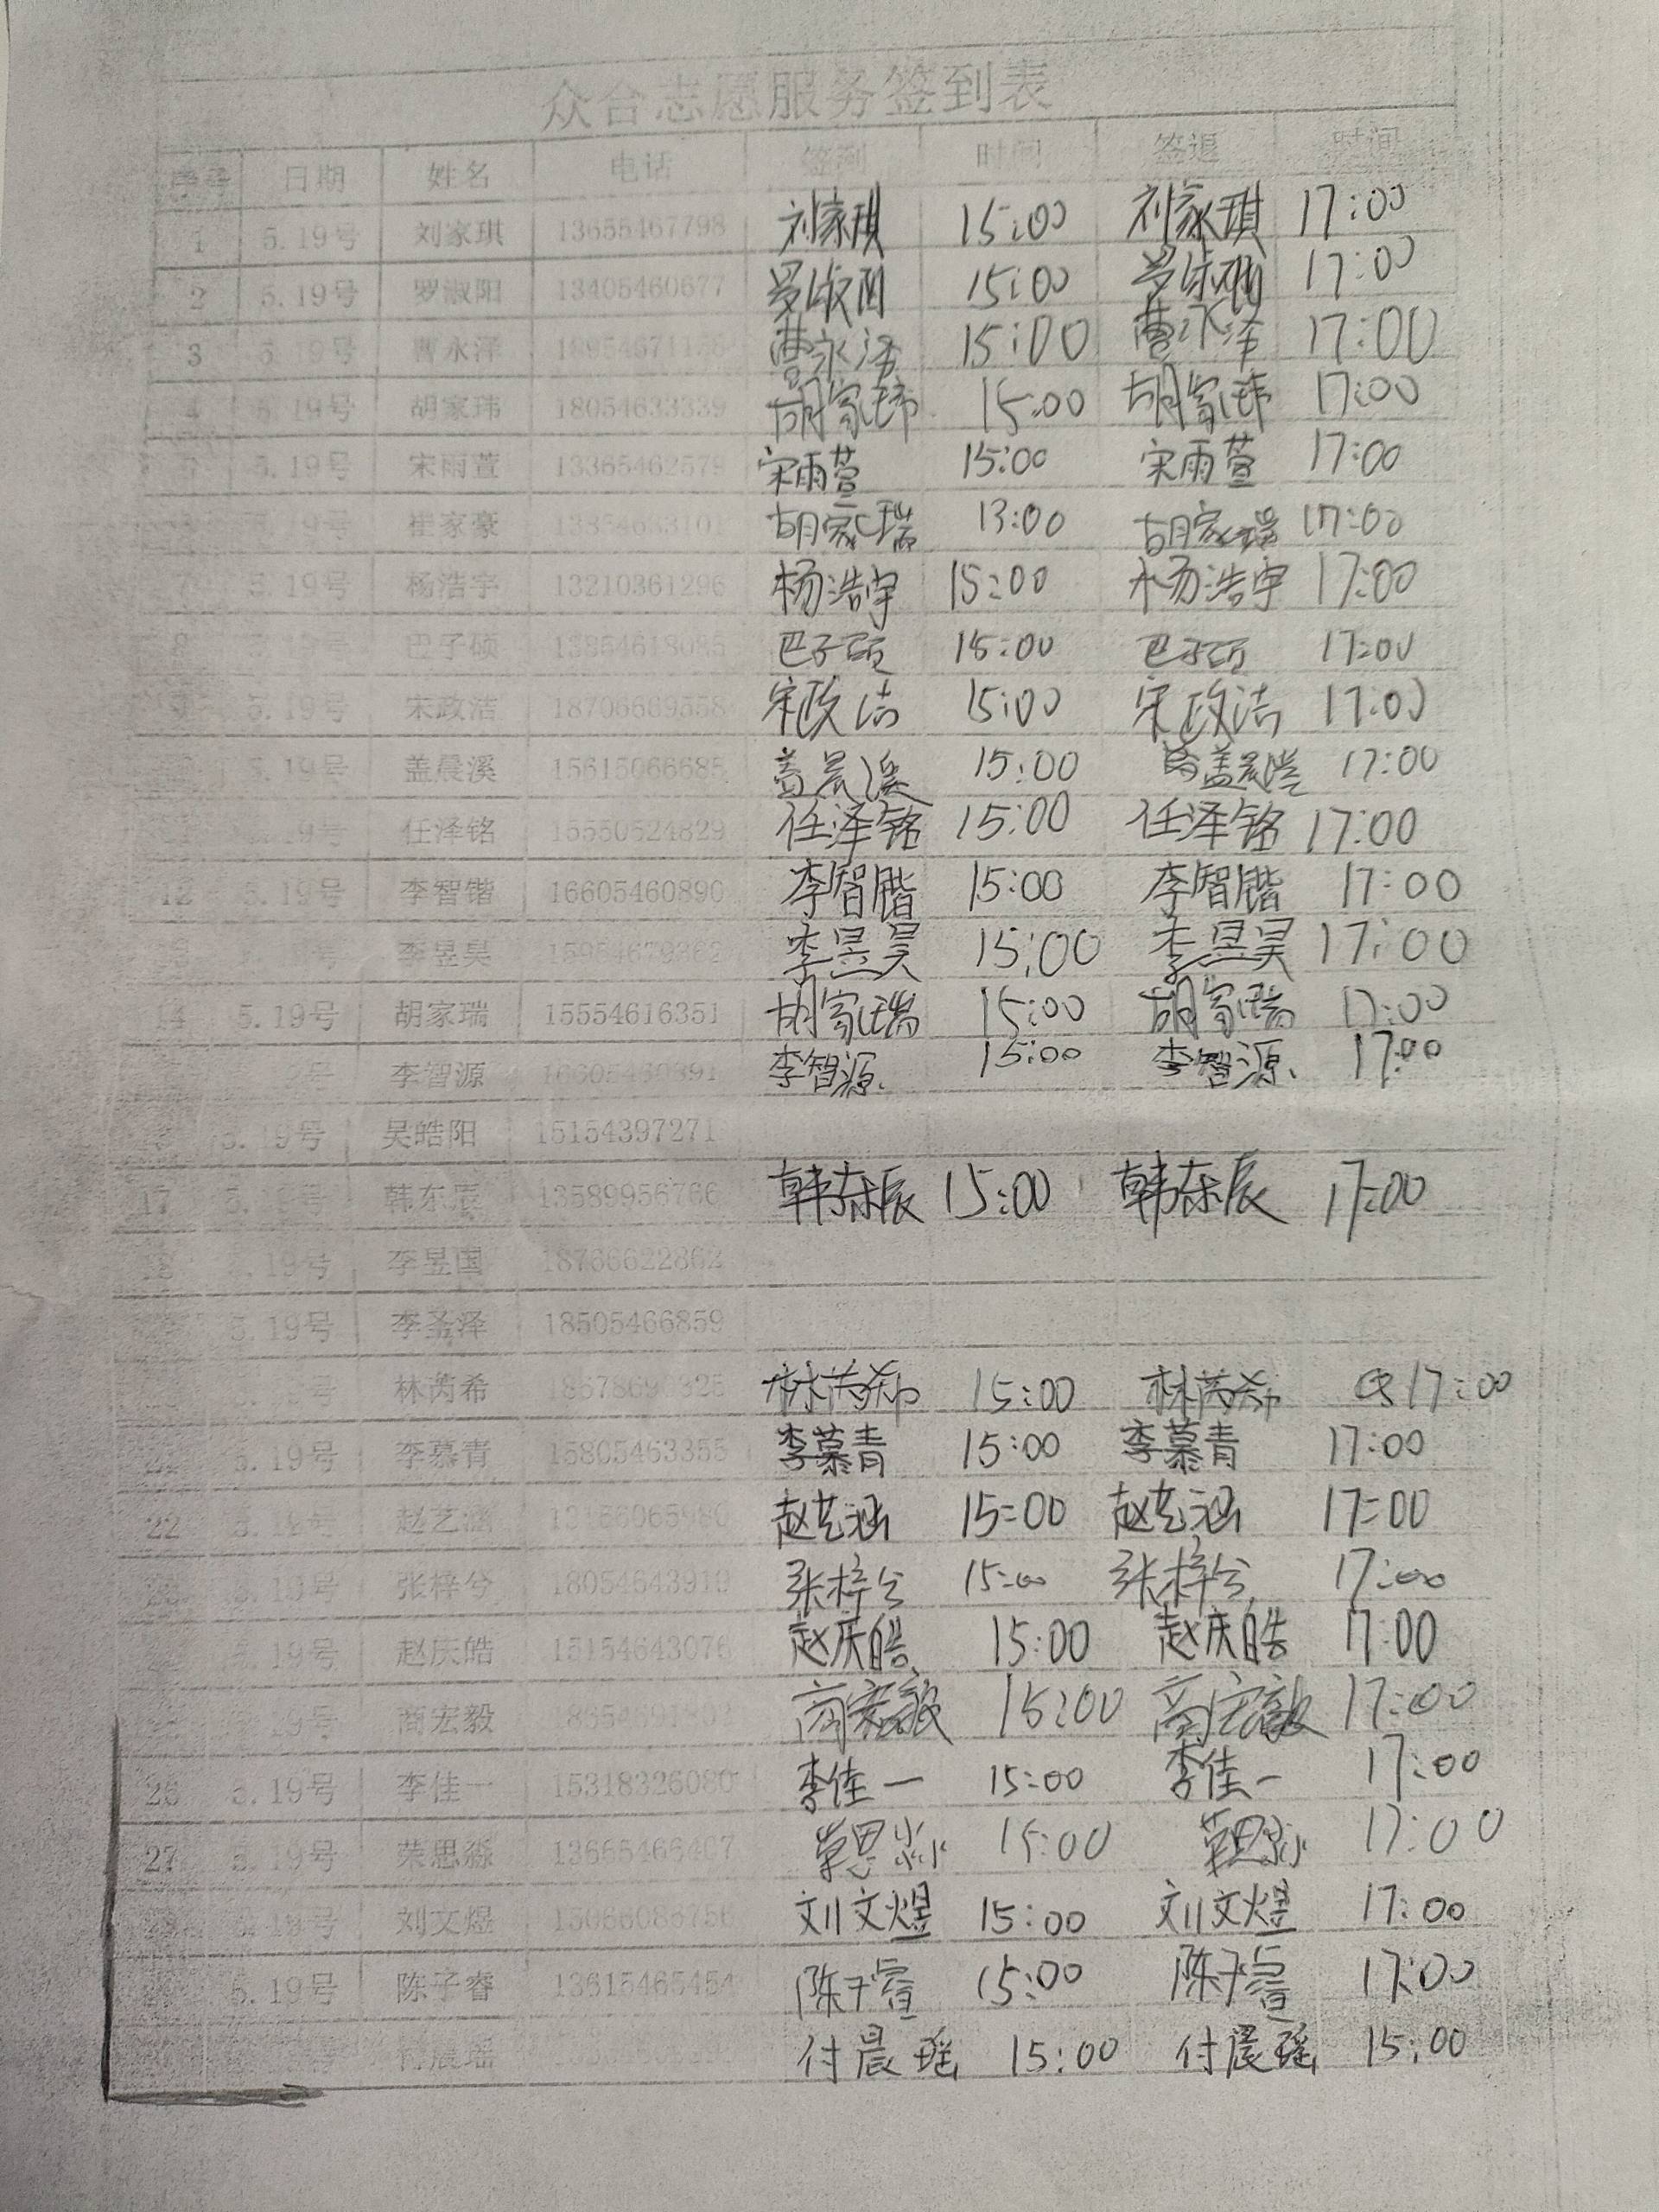 众合志愿服务签到表
序号 日期 姓名 电话 签到 时间 签退 时间
1 5.19号 刘家琪 13655467798 刘家琪 15:00 刘家琪 17:00
2 5.19号 罗淑阳 13405460677 罗淑阳 15:00 罗淑阳 17:00
3 5.19号 曹永泽 曹永泽 15:00 曹永泽 17:00
4 5.19号 胡家玮 18054633339 胡家玮 15:00 胡家玮 17:00
5.19号 宋雨萱 13365462579 宋雨萱 15:00 宋雨萱 17:00
19号 崔家豪 胡家瑞 13:00 胡家瑞 17:00
7 5.19号 杨浩宇 13210361296 杨浩宇 15:00 杨浩宇 17:00
8 巴子硕 13854618085 巴子硕 15:00 巴子硕 17:00
5.19号 宋政洁 宋政洁 15:00 宋政洁 17:00
5.19号 盖晨溪 15615066685 盖晨溪 15:00 盖晨溪 17:00
9号 任泽铭 15550524829 任泽铭 15:00 任泽铭 17:00
12 5.19号 李智锴 16605460890 李智锴 15:00 李智锴 17:00
号 李昱昊 李昱昊 15:00 李昱昊 17:00
14 5.19号 胡家瑞 15554616351 胡家瑞 15:00 胡家瑞 17:00
号 李智源 李智源 15:00 李智源 17:00
5.19号 吴皓阳 15154397271
17 韩东辰 13589956766 韩东辰 15:00 韩东辰 17:00
18 19号 李昱国 18766622862
5.19号 李圣泽 18505466859
号 林芮希 林芮希 15:00 林芮希 17:00
5.19号 李慕青 15805463355 李慕青 15:00 李慕青 17:00
22 5.19号 赵艺涵 赵艺涵 15:00 赵艺涵 17:00
5.19号 张梓兮 18054643910 张梓兮 15:00 张梓兮 17:00
5.19号 赵庆皓 15154643076 赵庆皓 15:00 赵庆皓 17:00
19号 商宏毅 商宏毅 15:00 商宏毅 17:00
26 5.19号 李佳一 15318326080 李佳一 15:00 李佳一 17:00
27 5.19号 荣思淼 荣思淼 15:00 17:00
刘文煜 刘文煜 15:00 刘文煜 17:00
5.19号 陈子睿 13615465454 陈子睿 15:00 陈子睿 17:00
付晨瑶 15:00 付晨瑶 15:00